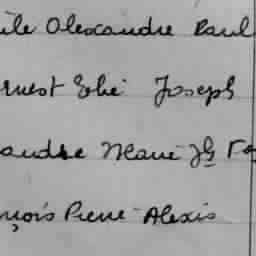 ile Alexandre Paul
rnest Elie Joseph
andre Marie Jh
nçois Pierre Alexis